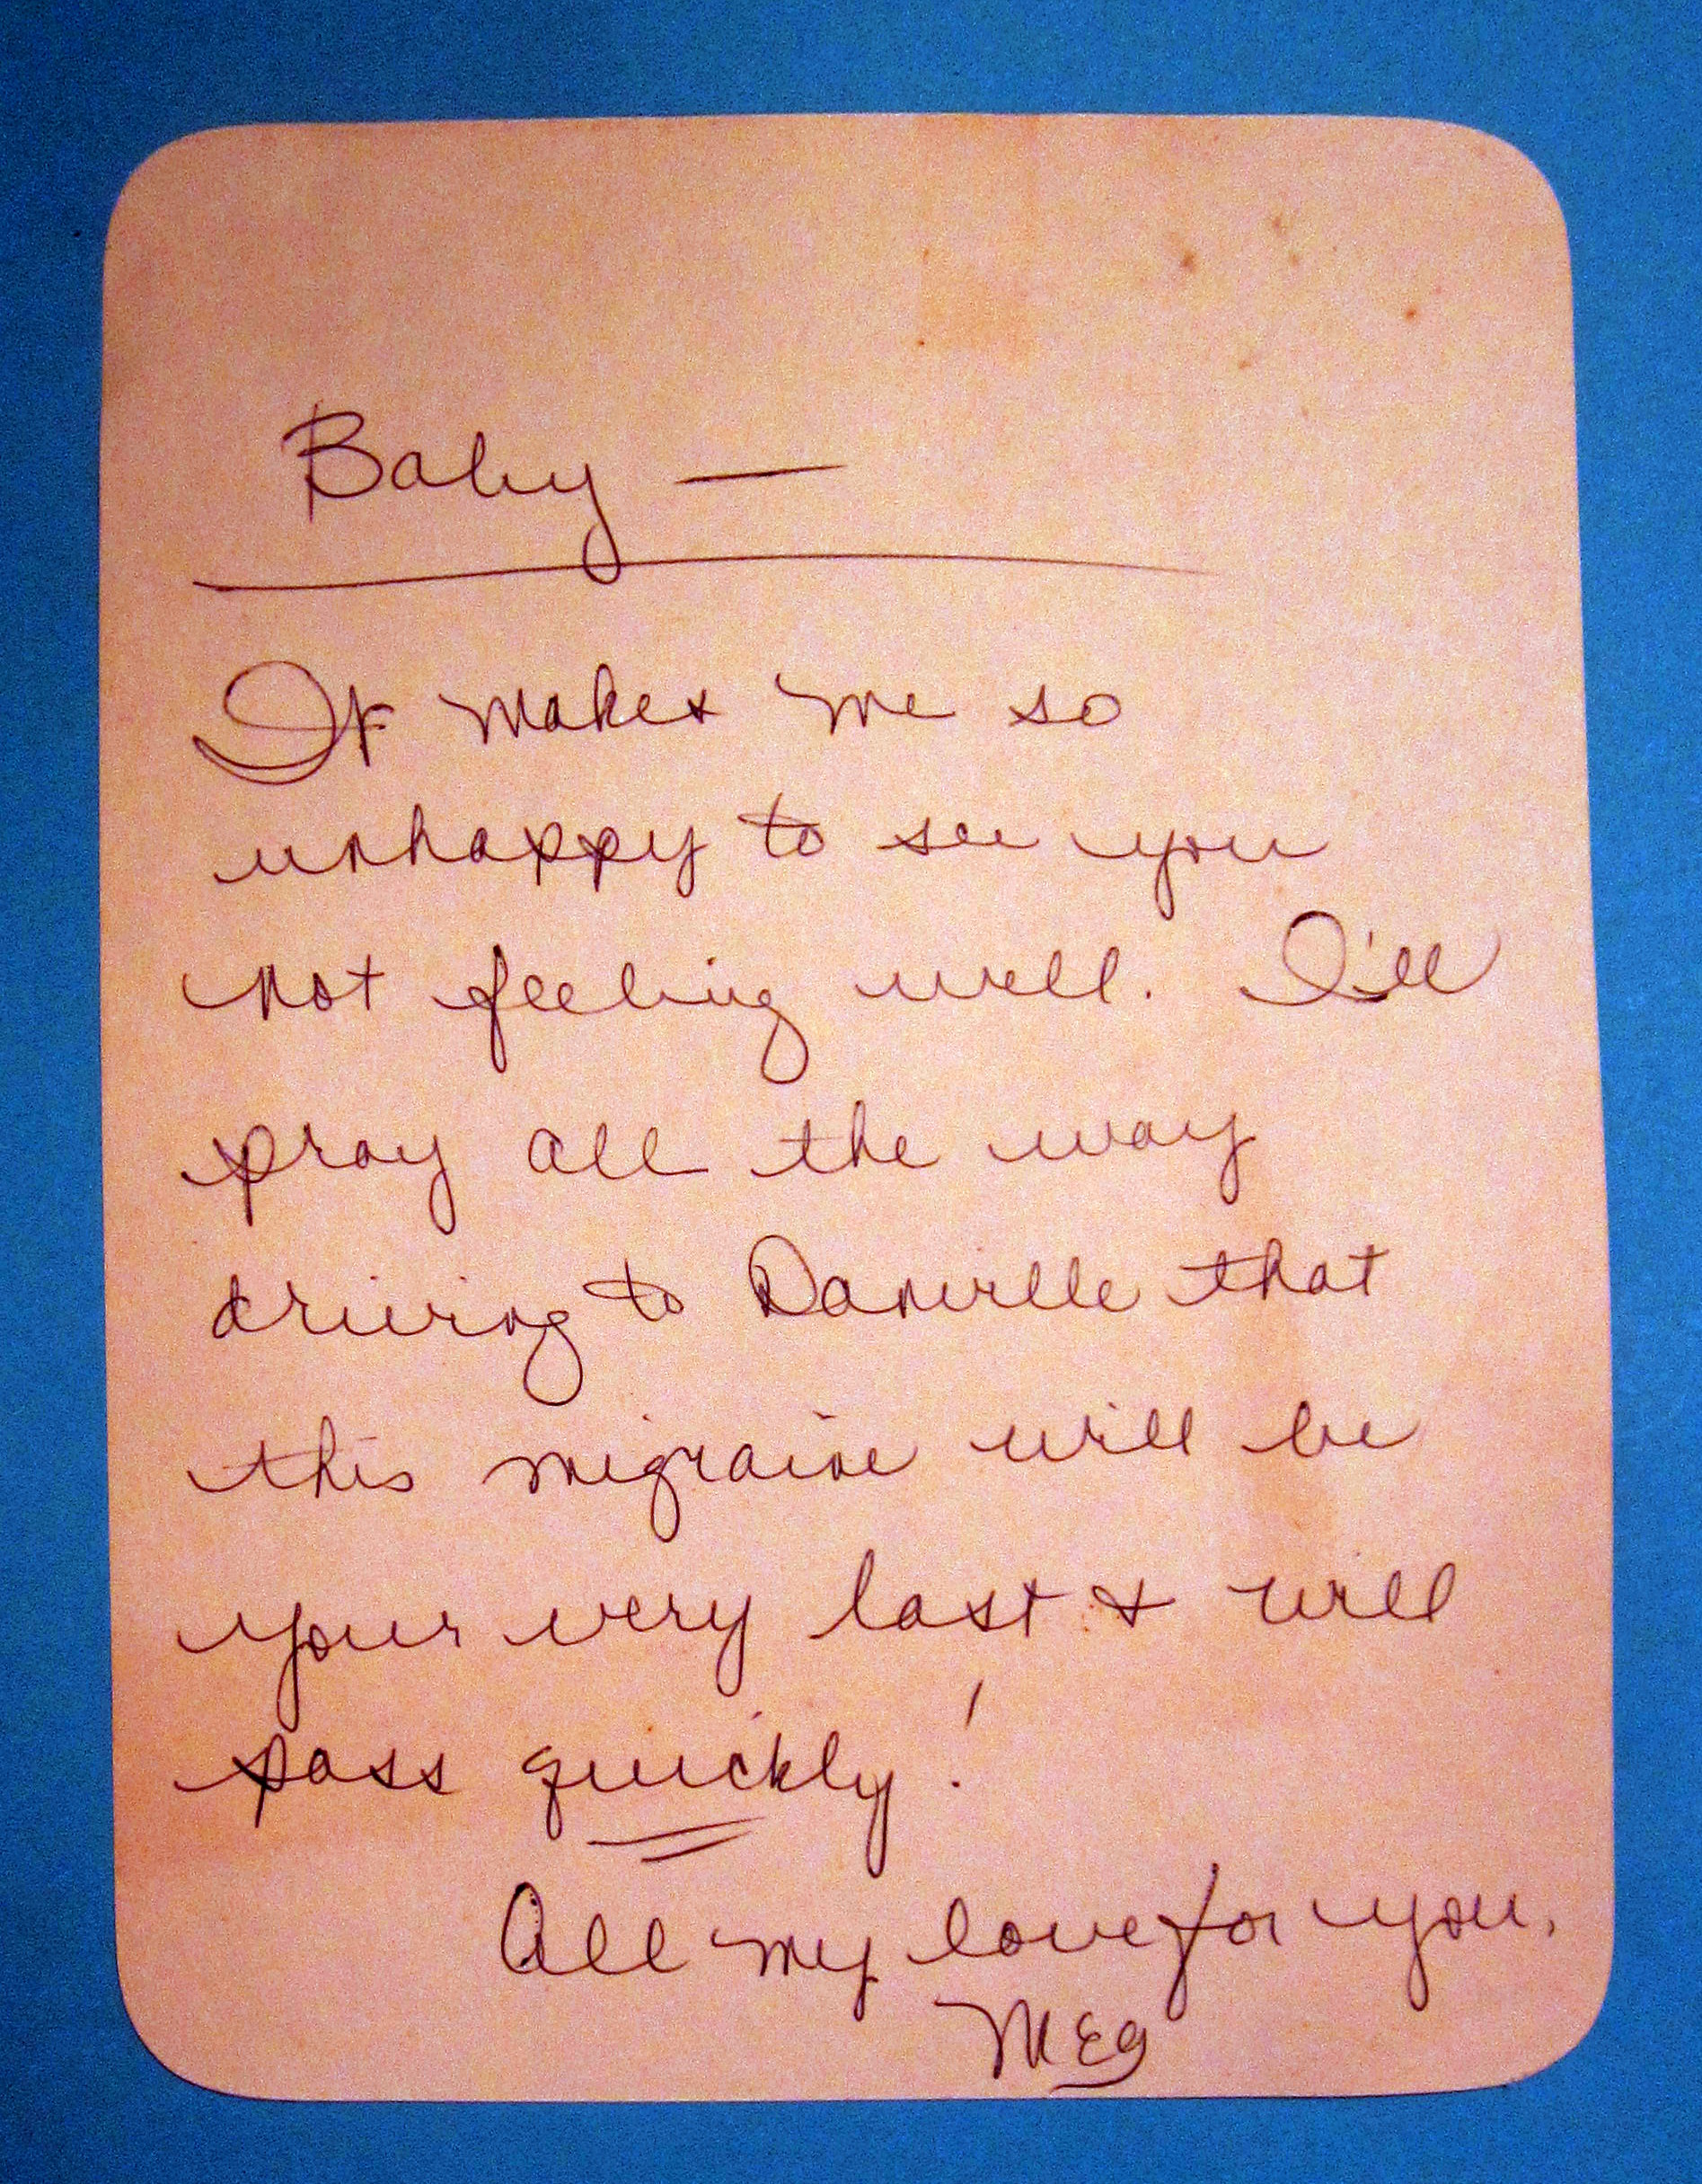 Baby —
It makes me so
unhappy to see you
not feeling well. I'll
pray all the way
driving to Danville that
this migraine will be
your very last & will
pass quickly!
All my love for you,
MEg